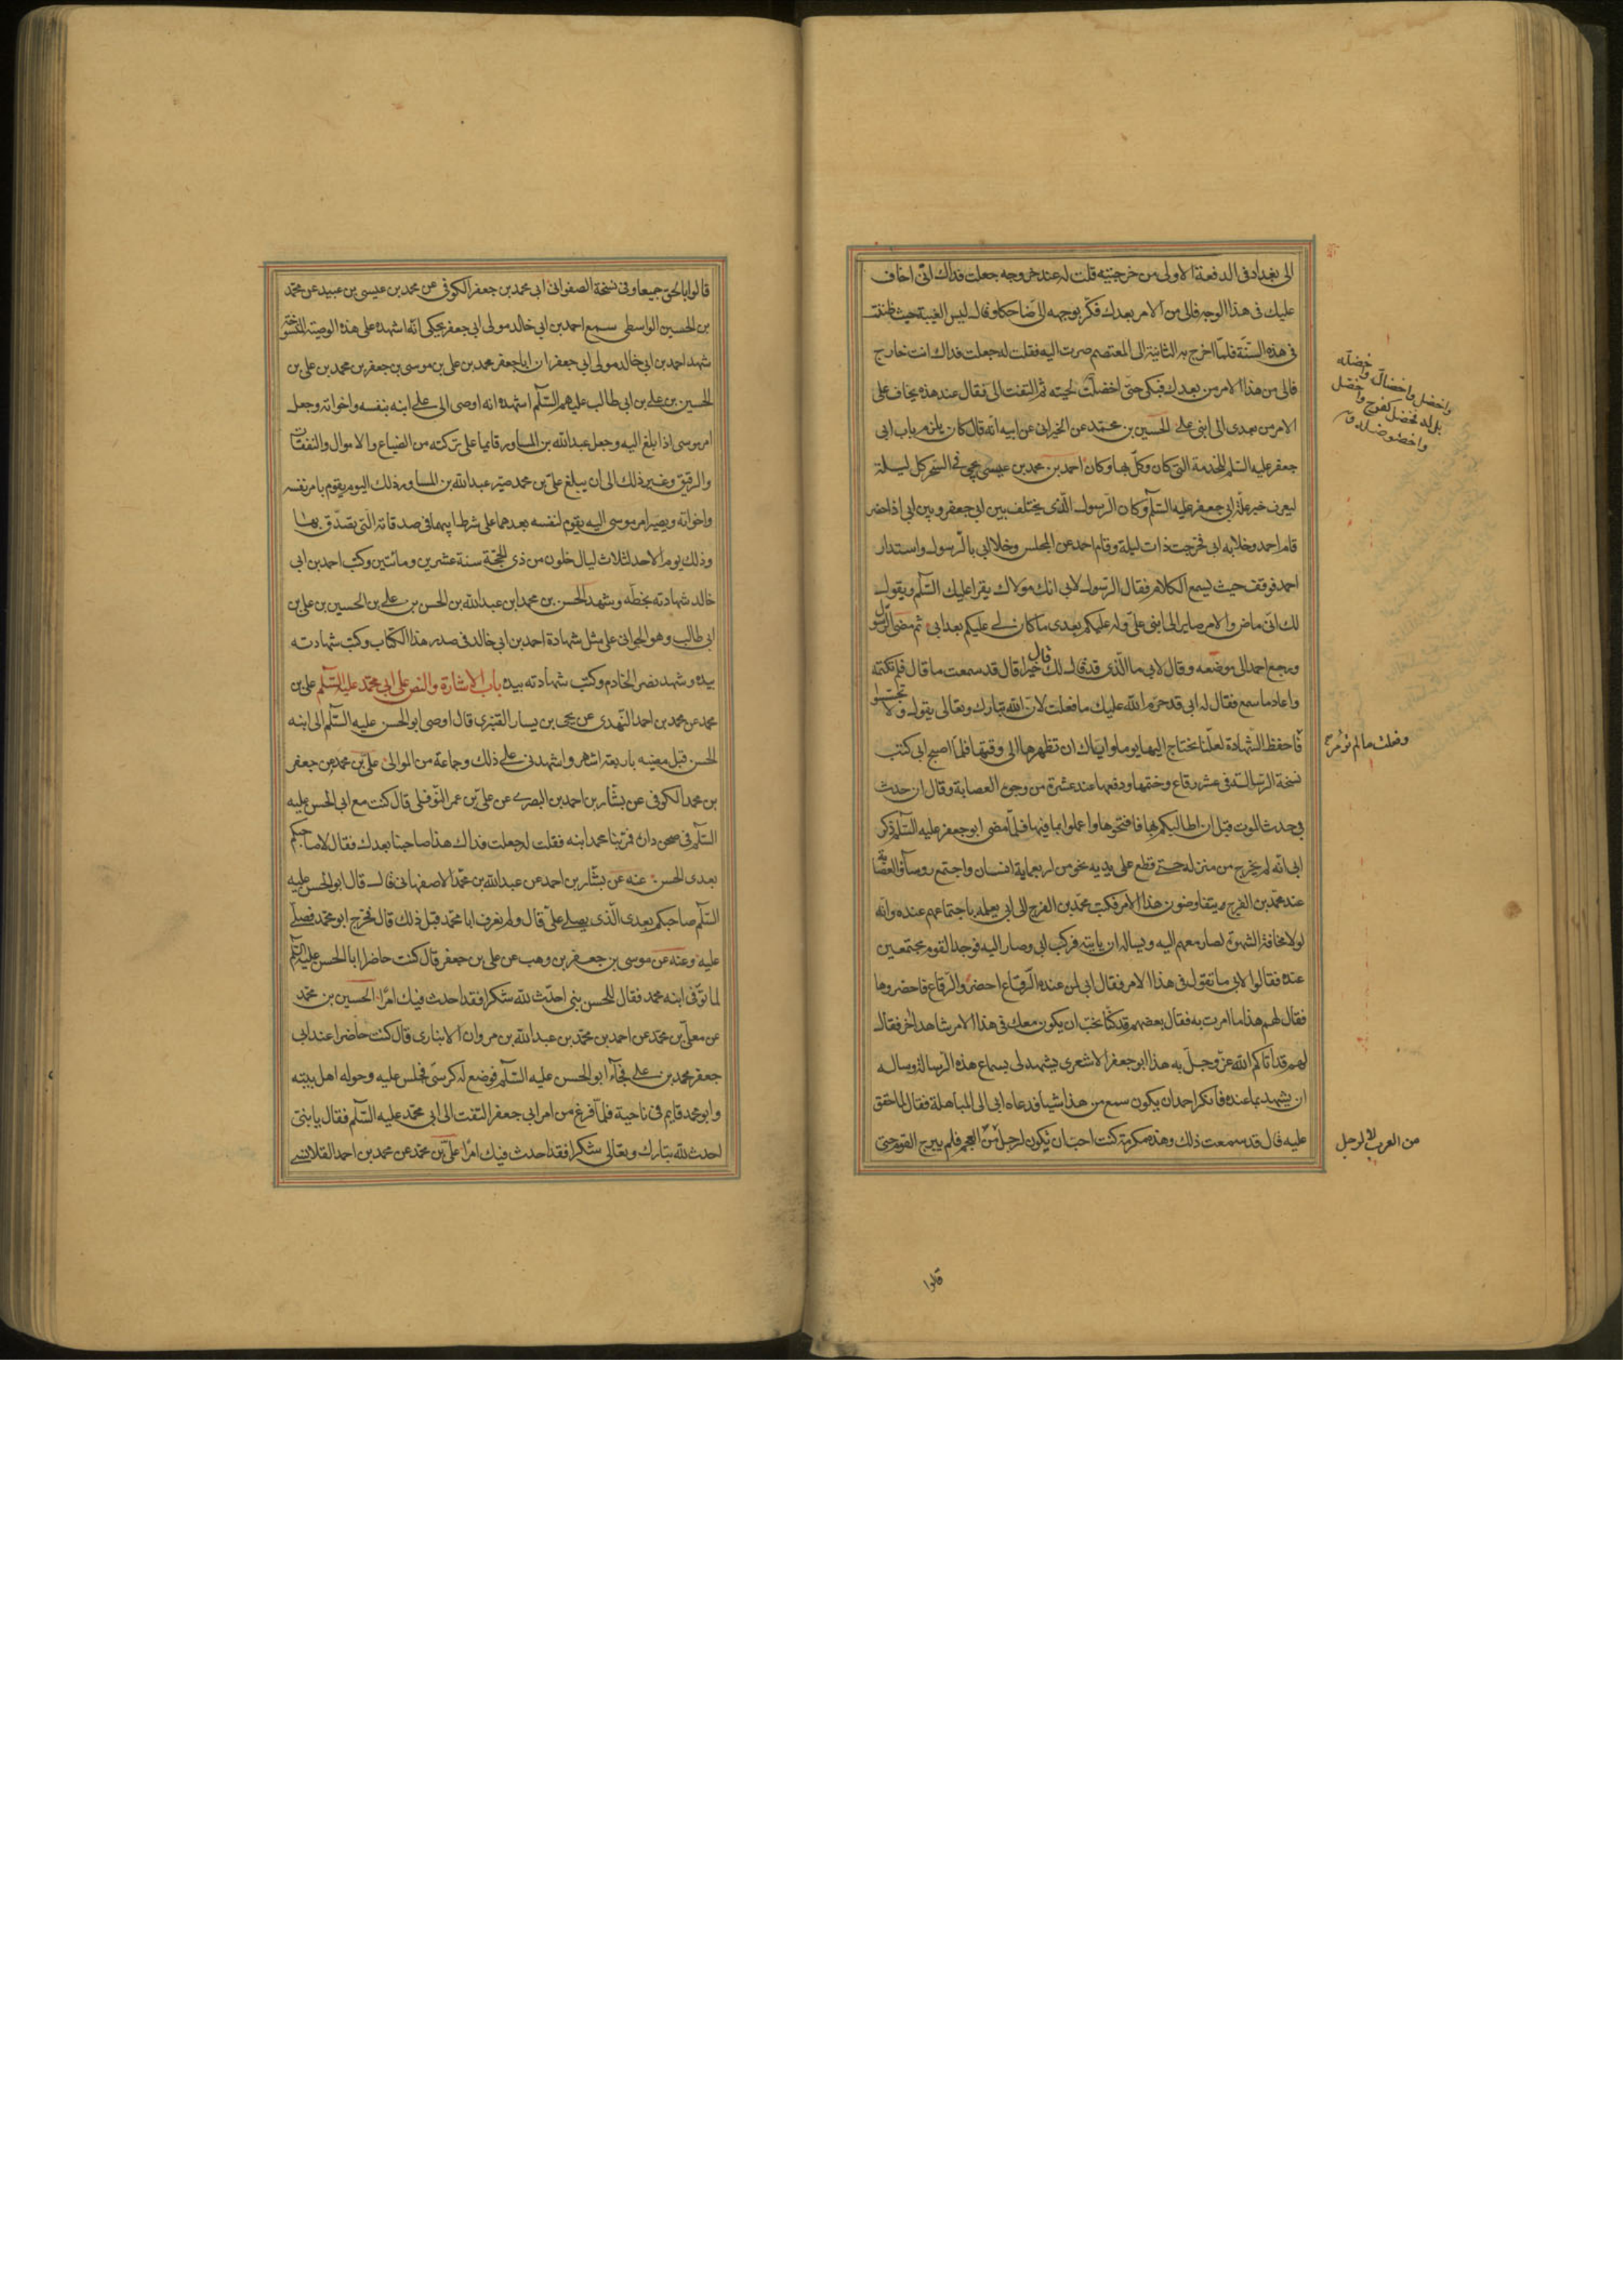 الى بغداد فى الدفعة الاولى من خرجتيه قلت له عند خروجه جعلت فداك انّى اخاف
عليك فى هذا الوجه فالى من الامر بعدك فكّر بوجهه الىّ ضاحكا وقال ليس الغيبة حيث ظننت
فى هذه السّنة فلمّا اخرج به الثانية الى المعتصم صرت اليه فقلت له جعلت فداك انت خارج
فالى من هذا الامر من بعدك فبكى حتى اخضلّت لحيته ثم التفت الى فقال عند هذه يخاف على
الامر من بعدى الى ابنى على الحسين بن محمد عن الخيرانى عن ابيه انّه قال كان يلزم باب ابى
جعفر عليه السّلم للخدمة التى كان وكّل بها وكان احمد بن محمد بن عيسى يجىء فى السّحر كل ليلة
ليعرف خبر علّة ابى جعفر عليه السّلم وكان الرّسول الّذى يختلف بين ابى جعفر وبين ابى اذا حضر
قام احمد وخلا به ابى فخرجت ذات ليلة وقام احمد عن المجلس وخلا ابى بالرّسول واستدار
احمد فوقف حيث يسمع الكلام فقال الرّسول لابى انّ مولاك يقرا عليك السّلم ويقول
لك انّى ماض والامر صاير الى ابنى علىّ وله عليكم بعدى ما كان لى عليكم بعد ابى ثم مضى الرّسول
ورجع احمد الى موضعه وقال لابى ما الّذى قد قال لك قال خيرا قال قد سمعت ما قال فلم تكتمه
واعاد ما سمع فقال له ابى قد حرّم الله عليك ما فعلت لانّ الله تبارك وتعالى يقول ولا تجسّسوا
فاحفظ الشّهادة لعلّنا نحتاج اليها يوما وايّاك ان تظهرها الى وقتها فلمّا اصبح ابى كتب
نسخة الرّسالة فى عشر رقاع وختمها ودفعها عند عشرة من وجوه العصابة وقال ان حدث
بى حدث الموت قبل ان اطالبكم بها فافتحوها واعملوا بما فيها فلمّا مضى ابو جعفر عليه السّلم ذكر
ابى انّه لم يخرج من منزله حتى قطع على يديه نحو من اربعماية انسان واجتمع روساء العصابة
عند محمد بن الفرج ويتفاوضون هذا الامر فكتب محمّد بن الفرج الى ابى يعلمه باجتماعهم عنده وانّه
لولا مخافة الشهرة لصار معهم اليه ويساله ان ياتيه فركب ابى وصار اليه فوجد القوم مجتمعين
عنده فقالوا لابى ما تقول فى هذا الامر فقال ابى لمن عنده الرّقاع احضروا الرّقاع فاحضروها
فقال لهم هذا ما امرت به فقال بعضهم قد كنّا نحبّ ان يكون معك فى هذا الامر شاهد اخر فقال
لهم قد اتاكم الله عزّ وجلّ به هذا ابو جعفر الاشعرى يشهد لى بسماع هذه الرّسالة وساله
ان يشهد بما عنده فانكر احمد ان يكون سمع من هذا شيا فدعاه ابى الى المباهلة فقال لمّا حقق
عليه قال قد سمعت ذلك وهذه مكرمة كنت احبّ ان تكون لرجل من العجم فلم يبرح القوم حتى
واخضل واخضالّ واخضلّه
بلّه فخضل كفرح واخضل
واخضوضل ق
وفعلت ما لم تؤمر
من العرب لا لرجل
قالوا
قالوا بالحق جميعا وفى نسخة الصفوانى ابى محمد بن جعفر الكوفى عن محمد بن عيسى بن عبيد عن محمّد
بن الحسين الواسطى سمع احمد بن ابى خالد مولى ابى جعفر يحكى انّه اشهده على هذه الوصيّة المنسوخة
شهد احمد بن ابى خالد مولى ابى جعفر بان ابا جعفر محمد بن على بن موسى بن جعفر بن محمد بن على بن
الحسين بن على بن ابى طالب عليهم السّلم اشهده انه اوصى الى على ابنه بنفسه واخواته وجعل
امر موسى اذا بلغ اليه وجعل عبد الله بن المساور قايما على تركته من الضياع والاموال والنفقات
والرقيق وغير ذلك الى ان يبلغ علىّ بن محمد صيّر عبد الله بن المساور ذلك اليوم يقوم بامر نفسه
واخواته ويصير امر موسى اليه يقوم لنفسه بعدهما على شرط ابيهما فى صدقاته الّتى تصدّق بها
وذلك يوم الاحد لثلاث ليال خلون من ذى الحجّة سنة عشرين ومائتين وكتب احمد بن ابى
خالد شهادته بخطّه وشهد الحسن بن محمد ابن عبد الله بن الحسن بن على بن الحسين بن على بن
ابى طالب وهو الجوانى على مثل شهادة احمد بن ابى خالد فى صدر هذا الكتاب وكتب شهادته
بيده وشهد نصر الخادم وكتب شهادته بيده باب الاشارة والنص على ابى محمّد عليه السّلم على بن
محمد عن محمد بن احمد النّهدى عن يحيى بن يسار القنبرى قال اوصى ابو الحسن عليه السّلم الى ابنه
الحسن قبل مضيّه باربعة اشهر واشهدنى على ذلك وجماعة من الموالى علىّ بن محمد عن جعفر
بن محمد الكوفى عن بشّار بن احمد البصرى عن علىّ بن عمر النّوفلى قال كنت مع ابى الحسن عليه
السّلم فى صحن داره فمرّ بنا محمد ابنه فقلت له جعلت فداك هذا صاحبنا بعدك فقال لا صاحبكم
بعدى الحسن عنه عن بشّار بن احمد عن عبد الله بن محمّد الاصفهانى قال قال ابو الحسن عليه
السّلم صاحبكم بعدى الّذى يصلى علىّ قال ولم نعرف ابا محمّد قبل ذلك قال فخرج ابو محمّد فصلّى
عليه وعنه عن موسى بن جعفر بن وهب عن على بن جعفر قال كنت حاضرا ابا الحسن عليه السّلم
لما توفّى ابنه محمد فقال للحسن يا بنى احدث لله شكرا فقد احدث فيك امرا الحسين بن محمّد
عن معلّى بن محمّد عن احمد بن محمّد بن عبد الله بن مروان الانبارى قال كنت حاضرا عند ابى
جعفر محمد بن على فجاء ابو الحسن عليه السّلم فوضع له كرسىّ فجلس عليه وحوله اهل بيته
وابو محمد قايم فى ناحية فلمّا فرغ من امر ابى جعفر التفت الى ابى محمّد عليه السّلم فقال يا بنىّ
احدث لله تبارك وتعالى شكرا فقد احدث فيك امرا علىّ بن محمّد عن محمد بن احمد القلانسى